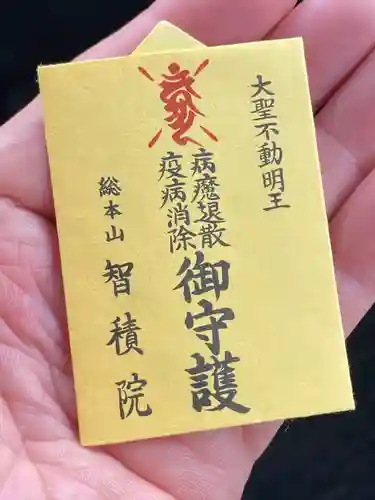 大聖不動明王
病魔退散
疫病消除
御守護
総本山
智積院